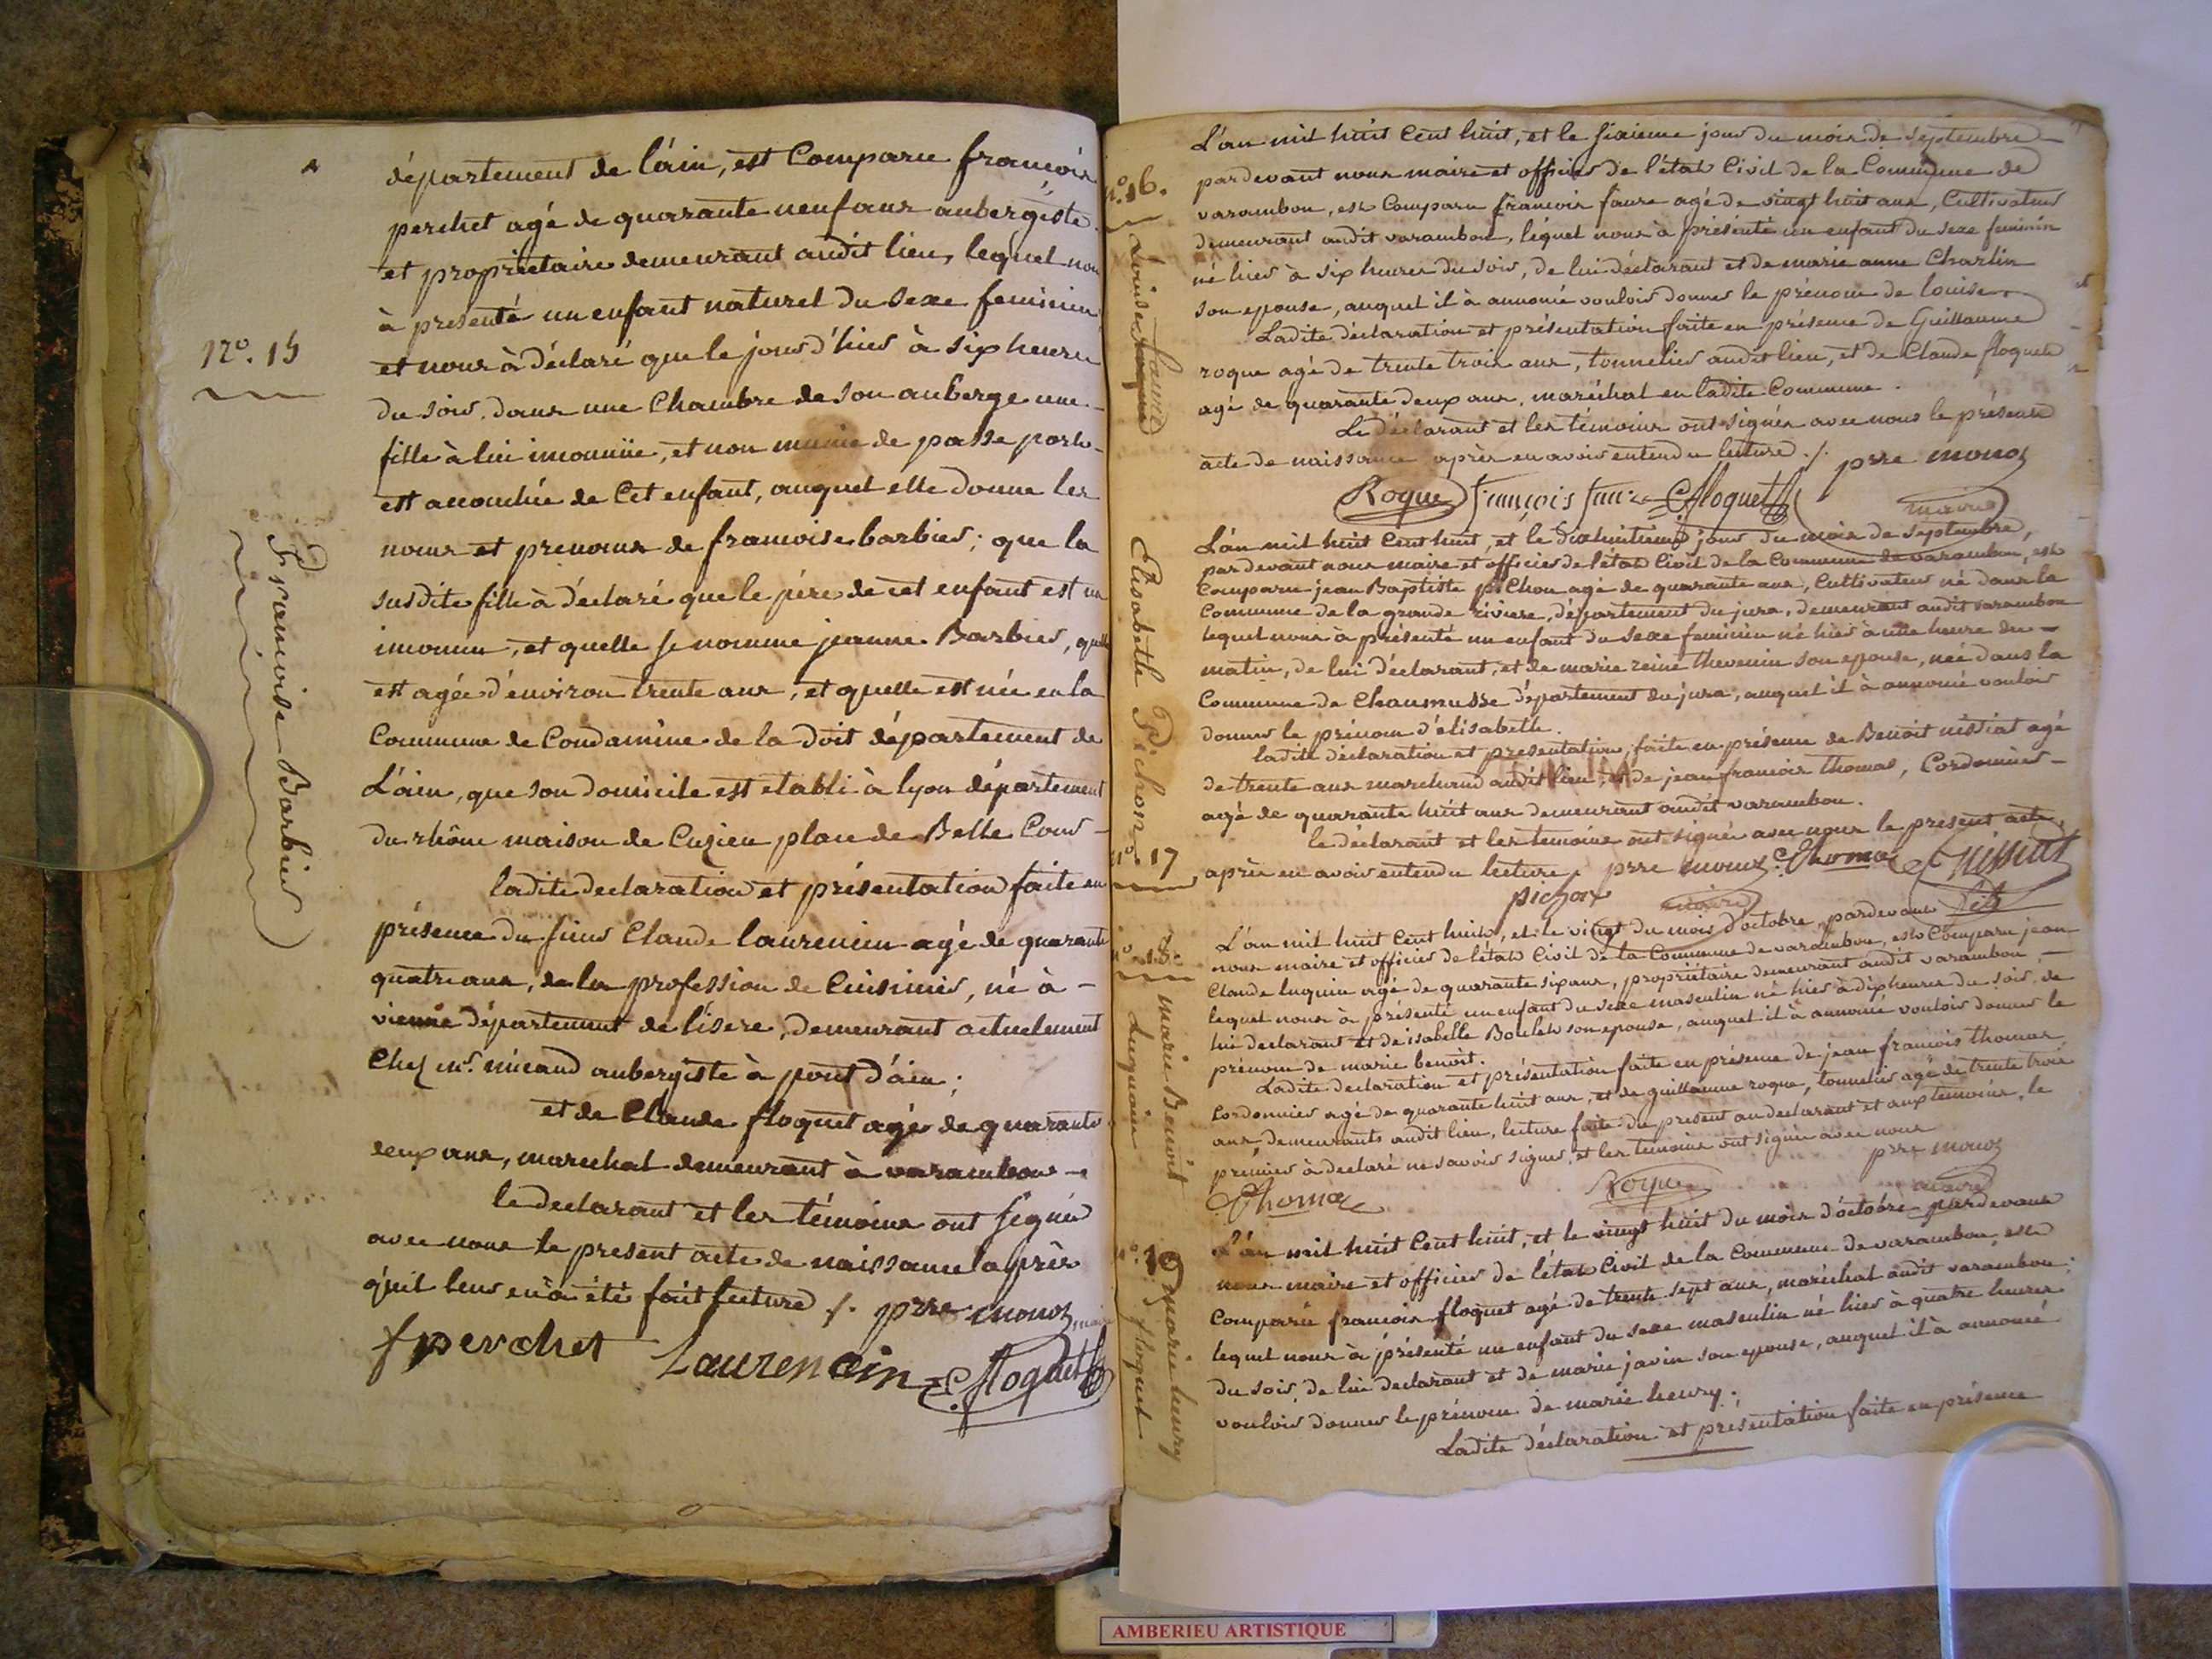 département de l'ain, est Comparu françois
perchet agé de quarante neuf ans aubergiste
et propriétaire demeurant audit lieu, lequel nous
à presenté un enfant naturel du sexe feminin
et nous à déclaré que le jour d'hier à six heures
N°. 15
du soir dans une Chambre de son auberge une
fille à lui inconnüe, et non munie de passe port
est accouchée de Cet enfant, auquel elle donne les
noms et prenoms de francoise barbier; que la
susdite fille à déclaré que le père de cet enfant est un
inconnu, et quelle se nomme jeanne Barbier, quelle
est agée d'environ trente ans, et quelle est née en la
Commune de Condamine de la doit département de
L'ain, que son domicile est etabli à lyon département
du rhône maison de Cuzieu place de Belle Cour
Françoise Barbier
ladite declaration et présentation faite en
présence du sieur Claude laurencin agé de quarante
quatre ans, de la profession de Cuisinier, né à
vienne département de l'isere, demeurant actuelement
Chez mr. micand aubergiste à pont d'ain;
et de Claude floquet agé de quarante
deux ans, marechal demeurant à varambon
le declarant et les témoins ont signé
avec nous le present acte de naissance après
qu'il leur en à été fait lecture /. prre monoz maire
fperchet Laurencin C. floquet
L'an mil huit Cent huit, et le sixieme jour du mois de septembre
n°. 16.
pardevant nous maire et officier de l'état Civil de la Commune de
varambon, est Comparu francois faure agé de vingt huit ans, Cultivateur
demeurant audit varambon, lequel nous à présenté un enfant du sexe feminin
né hier à six heures du soir, de lui déclarant et de marie anne Charlin
son epouse, auquel il à annoncé vouloir donner le prénom de louise.
Louise faure
Ladite déclaration et présentation faite en présence de Guillaume
roque agé de trente trois ans, tonnelier audit lieu, et de Claude floquet
agé de quarante deux ans, maréchal en ladite Commune.
Le déclarant et les témoins ont signés avec nous le présent
acte de naissance après en avoir entendu lecture /. prre monoz
Roque François faure C. floquet maire
L'an mil huit Cent huit, et le dixhuitieme jour du mois de septembre,
pardevant nous maire et officier de l'état Civil de la Commune de varambon, est
Comparu jean Baptiste pichon agé de quarante ans, Cultivateur né dans la
Commune de la grande riviere, département du jura, demeurant audit varambon
lequel nous à présenté un enfant du sexe feminin né hier à une heure du
matin, de lui déclarant, et de marie reine thevenin son epouse, née dans la
Commune de Chaumusse département du jura, auquel il à annoncé vouloir
donner le prénom d'élisabeth.
Elisabeth Pichon
ladite déclaration et presentation, faite en présence de Benoit nissiat agé
de trente ans marchand audit lieu, et de jean francois thomas, Cordonnier
agé de quarante huit ans demeurant audit varambon.
le déclarant et les temoins ont signé avec nous le present acte,
n°. 17
après en avoir entendu lecture prre monoz Thomas C. Nissiat
pichon maire fils
L'an mil huit Cent huit, et le vingt du mois d'octobre, pardevant
n°. 18.
nous maire et officier de l'état Civil de la Commune de varambon, est Comparu jean
Claude luquin agé de quarante six ans, propriétaire demeurant audit varambon,
lequel nous à présenté un enfant du sexe masculin né hier à dix heures du soir, de
lui declarant et de isabelle Boulet son epouse, auquel il à annoncé vouloir donner le
prénom de marie benoit.
marie Benoit Luquin
Ladite declaration et présentation faite en présence de jean francois thomas
Cordonnier agé de quarante huit ans, et de guillaume roque, tonnelier agé de trente trois
ans, demeurants audit lieu, lecture faite du present au declarant et aux témoins, le
premier à declaré ne savoir signer, et les temoins ont signés avec nous
prre monoz
Thomas Roque maire
L'an mil huit Cent huit, et le vingt huit du mois d'octobre pardevant
n°. 19
nous maire et officier de l'état Civil de la Commune de varambon, est
Comparu francois floquet agé de trente sept ans, maréchal audit varambon;
lequel nous à présenté un enfant du sexe masculin né hier à quatre heures
du soir, de lui declarant et de marie javin son epouse, auquel il à annoncé
vouloir donner le prénom de marie henry.
marie henry floquet
Ladite déclaration et présentation faite en présence
AMBERIEU ARTISTIQUE